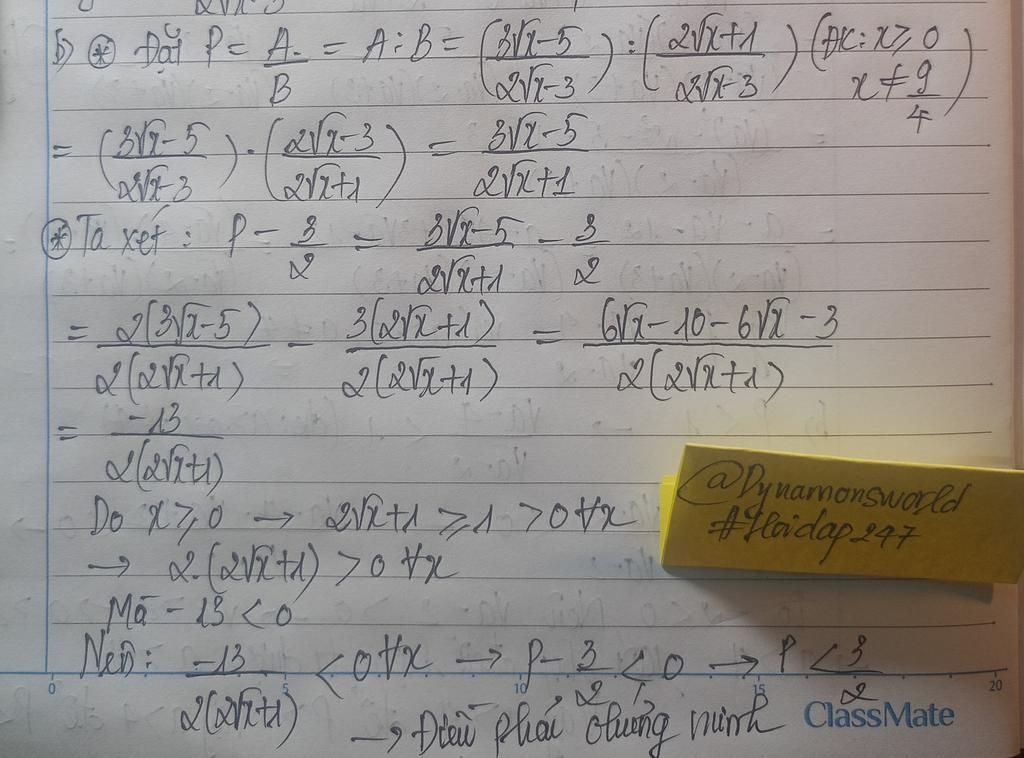 b) * Đặt P = A/B = A : B = ((3√x-5)/(2√x-3)) : ((2√x+1)/(2√x-3)) (ĐK: x ≥ 0 x ≠ 9/4)
= ((3√x-5)/(2√x-3)) . ((2√x-3)/(2√x+1)) = (3√x-5)/(2√x+1)
* Ta xét : P - 3/2 = (3√x-5)/(2√x+1) - 3/2
= 2(3√x-5)/2(2√x+1) - 3(2√x+1)/2(2√x+1) = (6√x-10-6√x-3)/2(2√x+1)
= -13/2(2√x+1)
Do x ≥ 0 → 2√x+1 ≥ 1 > 0 ∀x
→ 2.(2√x+1) > 0 ∀x
Mà -13 < 0
Nên: -13/2(2√x+1) < 0 ∀x → P - 3/2 < 0 → P < 3/2
→ Điều phải chứng minh
@Dynamonsworld
#Hoidap247
0 5 10 15 20
ClassMate